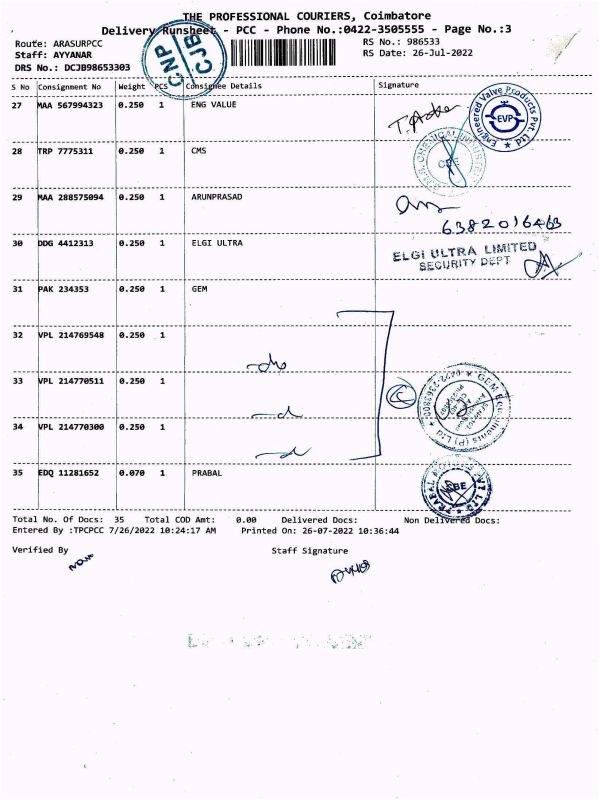 THE PROFESSIONAL COURIERS, Coimbatore
Delivery Runsheet - PCC - Phone No.:0422-3505555 - Page No.:3
Route: ARASURPCC
RS No.: 986533
Staff: AYYANAR
RS Date: 26-Jul-2022
DRS No.: DCJB98653303
CNP
CJB
S No Consignment No Weight PCS Consignee Details Signature
27 MAA 567994323 0.250 1 ENG VALUE
Engineered Valve Products Pvt. Ltd
EVP
28 TRP 7775311 0.250 1 CMS
CBE
29 MAA 288575094 0.250 1 ARUNPRASAD
6382016463
30 DDG 4412313 0.250 1 ELGI ULTRA
ELGI ULTRA LIMITED
SECURITY DEPT
31 PAK 234353 0.250 1 GEM
32 VPL 214769548 0.250 1
33 VPL 214770511 0.250 1
GEM Equipments (P) Ltd
34 VPL 214770300 0.250 1
35 EDQ 11281652 0.070 1 PRABAL
CBE
Total No. Of Docs: 35 Total COD Amt: 0.00 Delivered Docs: Non Delivered Docs:
Entered By :TPCPCC 7/26/2022 10:24:17 AM Printed On: 26-07-2022 10:36:44
Verified By Staff Signature